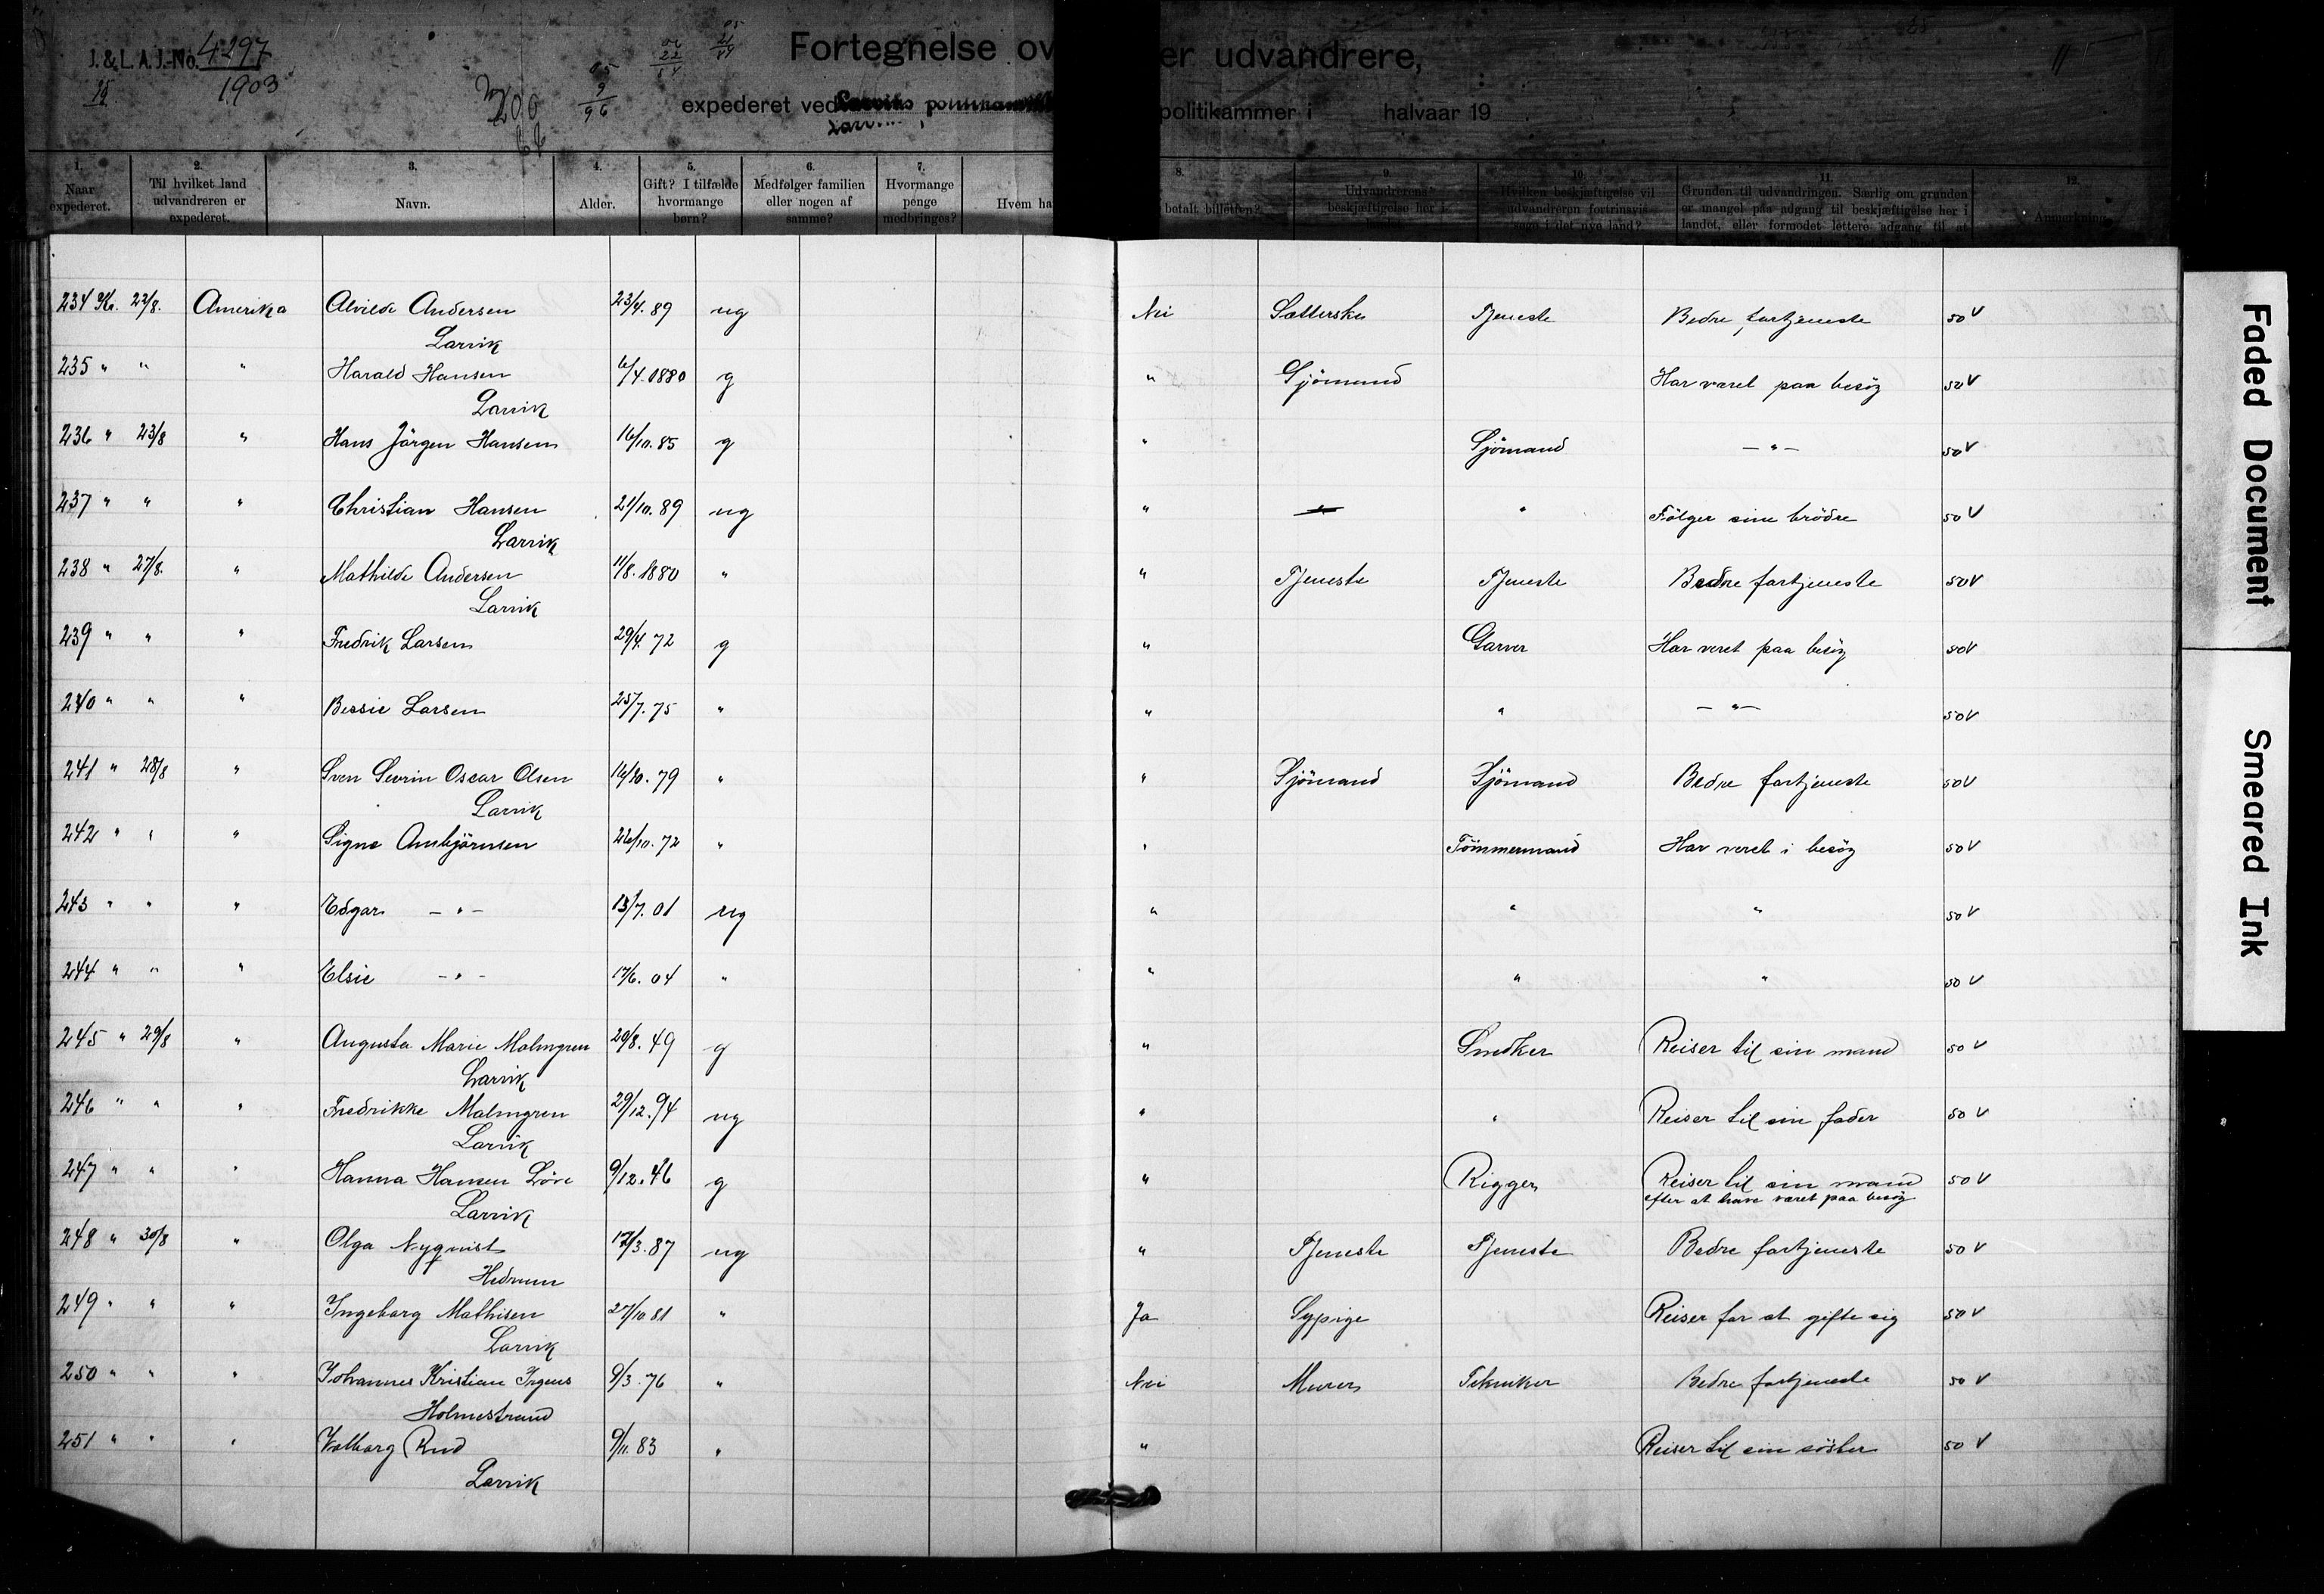 J. & L. A. J.-No. 4297
1903
Fortegnelse ov er udvandrere,
expederet ved politikammer i halvaar 19
1. Naar expederet.
2. Til hvilket land udvandreren er expederet.
3. Navn.
4. Alder.
5. Gift? I tilfælde hvormange børn?
6. Medfølger familien eller nogen af samme?
7. Hvormange penge medbringes?
8. Hvem ha betalt billetten?
9. Udvandrerens beskjæftigelse her i
10. Hvilken beskjæftigelse vil udvandreren fortrinsvis søge i det nye land?
11. Grunden til udvandringen. Særlig om grunden er mangel paa adgang til beskjæftigelse her i landet, eller formodet lettere adgang til at
12. Anmerkning.
234 Kr. 22/8. Amerika Alvilde Andersen 23/4. 89 ug Nei Sætterske Tjeneste Bedre fortjeneste 50 V
Larvik
235 " " " Harald Hansen 6/4. 1880 g " Sjömand Har været paa besög 50 V
Larvik
236 " 23/8 " Hans Jörgen Hansen 16/10. 85 g " Sjömand — " — 50 V
237 " " " Christian Hansen 21/10. 89 ug " " Fölger sine brödre 50 V
Larvik
238 " 27/8. " Mathilde Andersen 11/8. 1880 " " Tjeneste Tjeneste Bedre fortjeneste 50 V
Larvik
239 " " " Fredrik Larsen 29/4. 72 g " Garver Har veret paa besög 50 V
240 " " " Bessie Larsen 25/7. 75 " " " — " — 50 V
241 " 28/8 " Sven Sevrin Oscar Olsen 16/10. 79 " " Sjömand Sjömand Bedre fortjeneste 50 V
Larvik
242 " " " Signe Ambjörnsen 26/10. 72 " " Tömmermand Har veret i besög 50 V
243 " " " Edgar — " — 13/7. 01 ug " " " 50 V
244 " " " Elsie — " — 17/6. 04 " " " " 50 V
245 " 29/8 " Augusta Marie Malmgren 20/8. 49 g " Snedker Reiser til sin mand 50 V
Larvik
246 " " " Fredrikke Malmgren 29/12. 94 ug " " Reiser til sin fader 50 V
Larvik
247 " " " Hanna Hansen Löve 9/12. 46 g " Rigger Reiser til sin mand 50 V
Larvik efter at have været paa besög
248 " 30/8 " Olga Nyqvist 17/3. 87 ug " Tjeneste Tjeneste Bedre fortjeneste 50 V
Hedrum
249 " " " Ingeborg Mathisen 27/10 81 " Ja Sypige Reiser for at gifte sig 50 V
Larvik
250 " " " Johannes Kristian Irgens 9/3. 76 " Nei Murer Tekniker Bedre fortjeneste 50 V
Holmestrand
251 " " " Valborg Rud 9/11. 83 " " Reiser til sin söster 50 V
Larvik
Faded Document
Smeared Ink